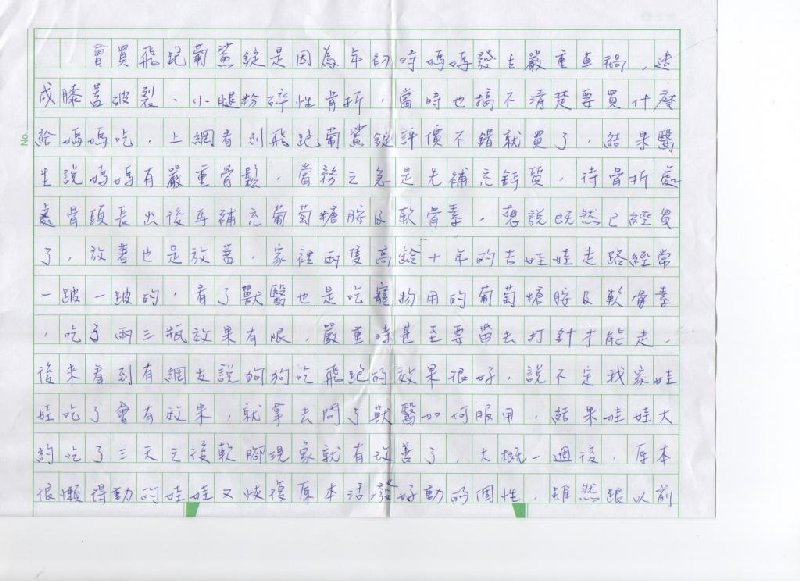 會買飛跑葡鯊錠是因為年初時媽媽發生嚴重車禍,造
成膝蓋破裂、小腿粉碎性骨折,當時也搞不清楚要買什麼
給媽媽吃,上網看到飛跑葡鯊錠評價不錯就買了,結果醫
生說媽媽有嚴重骨鬆,當務之急是先補充鈣質,待骨折處
處骨頭長出後再補充葡萄糖胺及軟骨素,想說既然已經買
了,放著也是放著,家裡兩隻高齡十年的吉娃娃走路經常
一跛一跛的,看了獸醫也是吃寵物用的葡萄糖胺及軟骨素
,吃了兩三瓶效果有限,嚴重時甚至要帶去打針才能走,
後來看到有網友說狗狗吃飛跑的效果很好,說不定我家娃
娃吃了會有效果,就拿去問了獸醫如何服用,結果娃娃大
約吃了三天之後軟腳現象就有改善了,大概一週後,原本
很懶得動的娃娃又恢復原本活潑好動的個性,雖然跟以前
No.